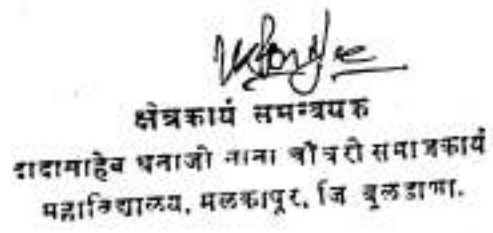 क्षेत्रकार्य समन्वयक
दादासाहेब धनाजी नाना चौधरी समाजकार्य
महाविद्यालय, मलकापूर, जि बुलडाणा.